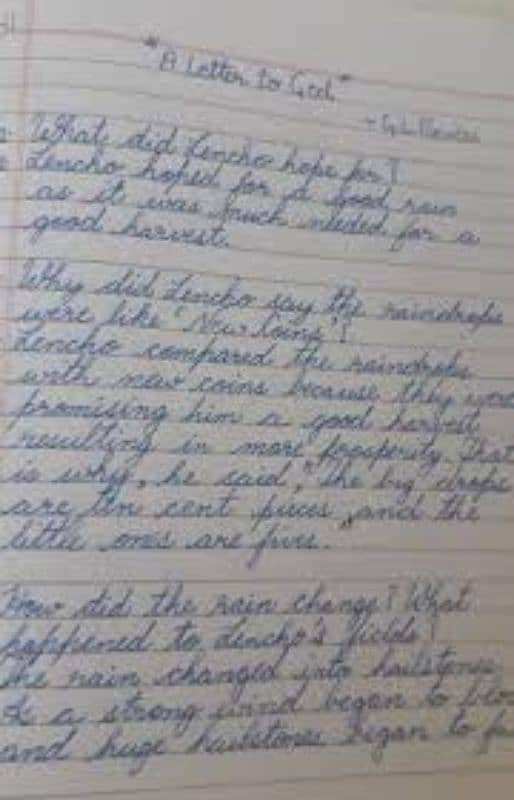 "A Letter to God"
- G.L.
What did Lencho hope for?
Lencho hoped for a good rain
as it was much needed for a
good harvest.
Why did Lencho say the raindrops
were like 'New Coins'?
Lencho compared the raindrops
with new coins because they were
promising him a good harvest
resulting in more prosperity. That
is why, he said, "the big drops
are ten cent pieces and the
little ones are fives.
How did the rain change? What
happened to Lencho's fields?
The rain changed into hailstones
& a strong wind began to
and huge hailstones began to